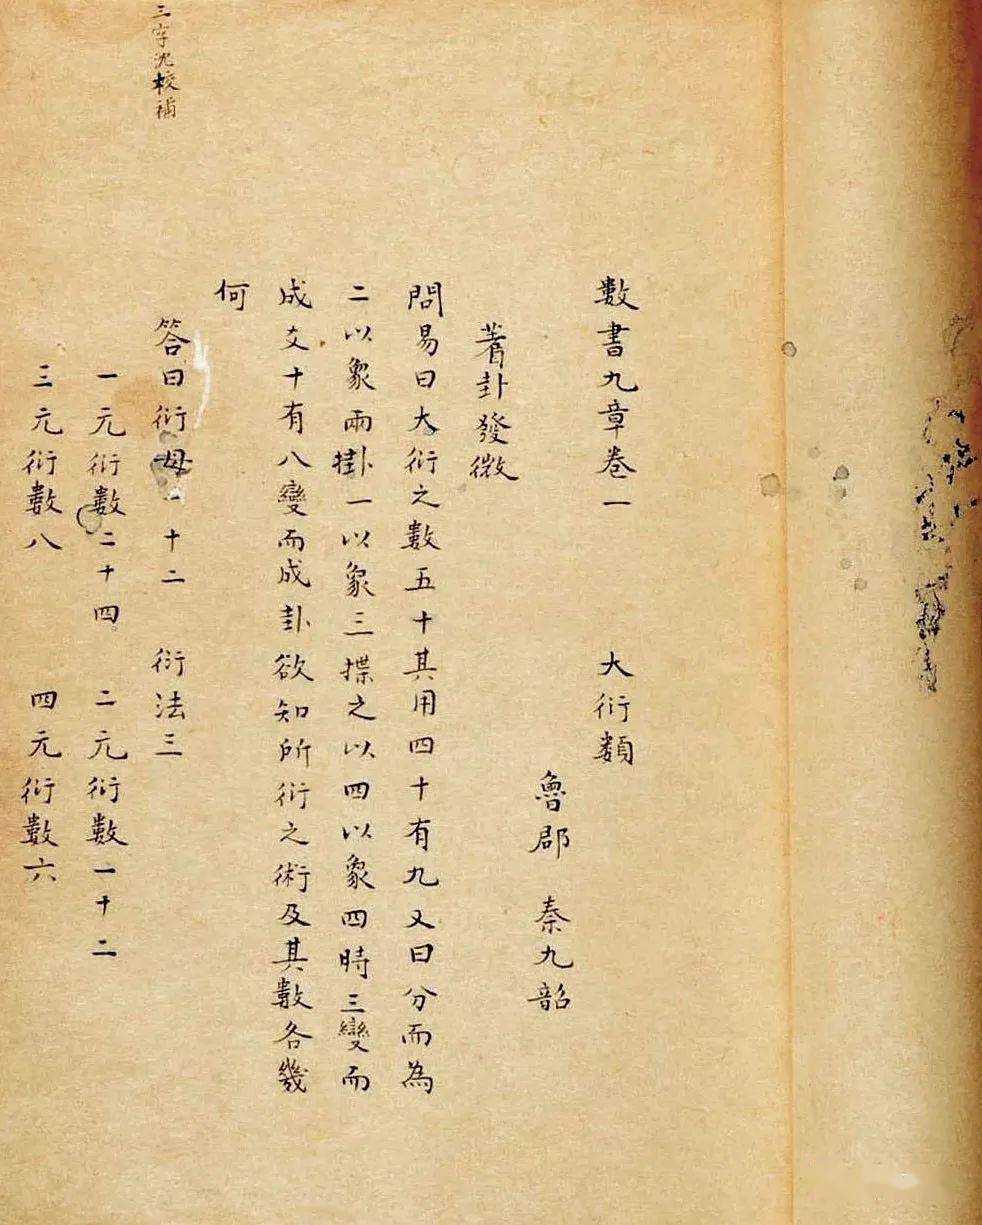 數書九章卷一 大衍類
魯郡 秦九韶
蓍卦發微
問易曰大衍之數五十其用四十有九又曰分而為
二以象兩掛一以象三揲之以四以象四時三變而
成爻十有八變而成卦欲知所衍之術及其數各幾
何
答曰衍母一十二 衍法三
一元衍數二十四 二元衍數一十二
三元衍數八 四元衍數六
三字沈校補